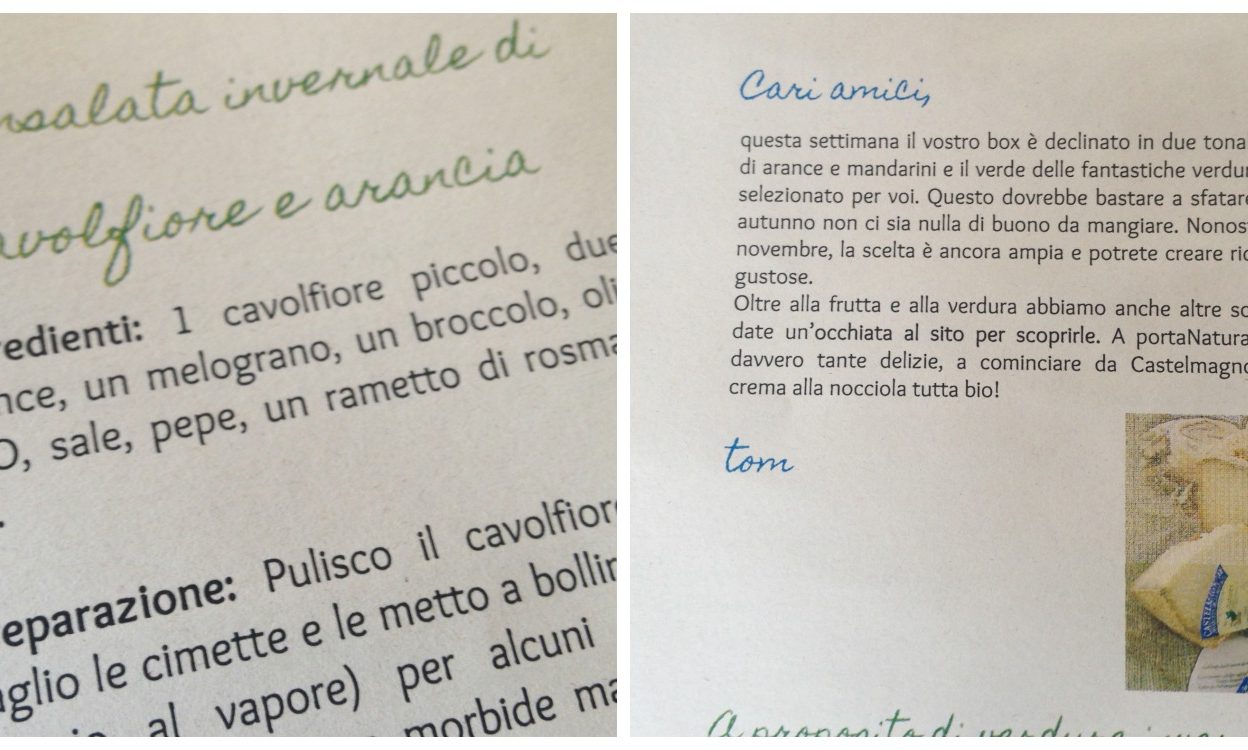 nsalata invernale di
avolfiore e arancia
redienti: 1 cavolfiore piccolo, due
nce, un melograno, un broccolo, oli
O, sale, pepe, un rametto di rosma
.
eparazione: Pulisco il cavolfior
aglio le cimette e le metto a bollir
al vapore) per alcuni
morbide ma
Cari amici,
questa settimana il vostro box è declinato in due tona
di arance e mandarini e il verde delle fantastiche verdur
selezionato per voi. Questo dovrebbe bastare a sfatare
autunno non ci sia nulla di buono da mangiare. Nonos
novembre, la scelta è ancora ampia e potrete creare ric
gustose.
Oltre alla frutta e alla verdura abbiamo anche altre so
date un'occhiata al sito per scoprirle. A portaNatura
davvero tante delizie, a cominciare da Castelmagno
crema alla nocciola tutta bio!
tom
A proposito di verdura